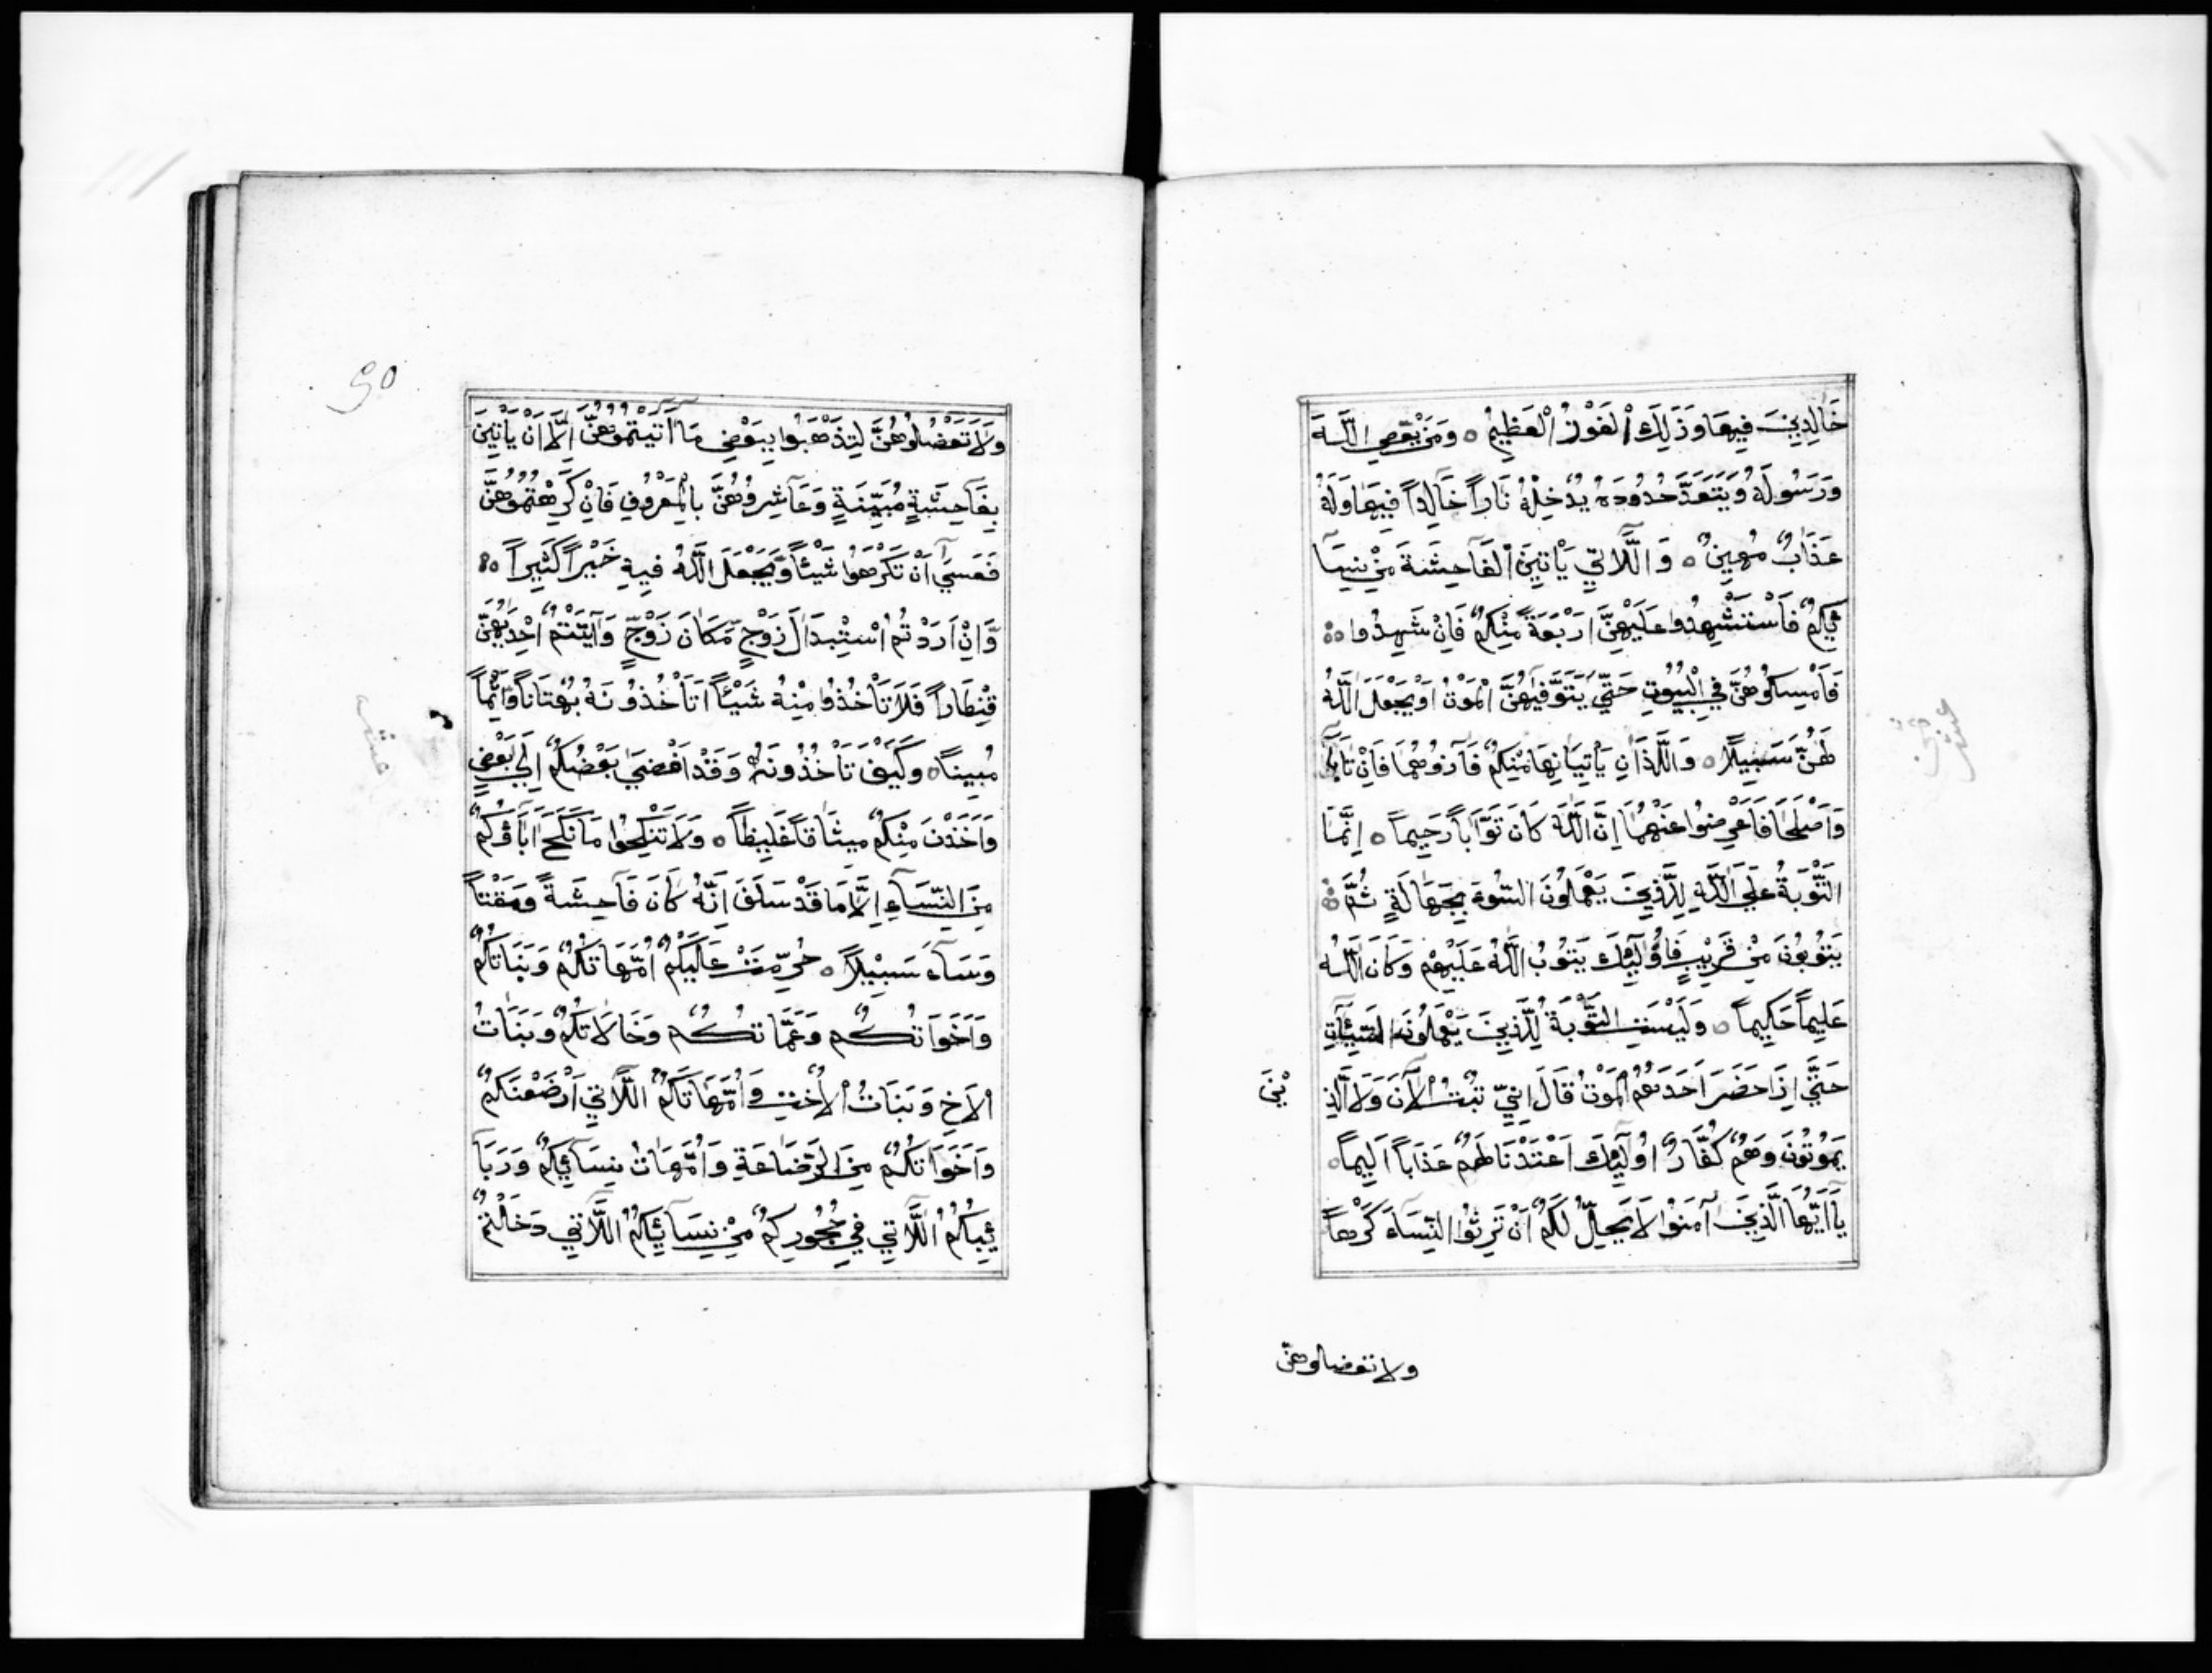 خَالِدِينَ فِيهَا وَذَلِكَ الْفَوْزُ الْعَظِيمُ ه وَمَنْ يَعْصِ اللَّهَ
وَرَسُولَهُ وَيَتَعَدَّ حُدُودَهُ يُدْخِلْهُ نَاراً خَالِداً فِيهَا وَلَهُ
عَذَابٌ مُهِينٌ ه وَاللَّاتِي يَأْتِينَ الْفَاحِشَةَ مِنْ نِسَآ
ئِكُمْ فَاسْتَشْهِدُوا عَلَيْهِنَّ اَرْبَعَةً مِنْكُمْ فَاِنْ شَهِدُوا
فَاَمْسِكُوهُنَّ فِي الْبُيُوتِ حَتَّى يَتَوَفَّيهُنَّ الْمَوْتُ اَوْ يَجْعَلَ اللَّهُ
لَهُنَّ سَبِيلًا ه وَاللَّذَانِ يَأْتِيَانِهَا مِنْكُمْ فَآذُوهُمَا فَاِنْ تَابَا
وَاَصْلَحَا فَاَعْرِضُوا عَنْهُمَا اِنَّ اللَّهَ كَانَ تَوَّاباً رَحِيماً ه اِنَّمَا
التَّوْبَةُ عَلَى اللَّهِ لِلَّذِينَ يَعْمَلُونَ السُّوءَ بِجَهَالَةٍ ثُمَّ
يَتُوبُونَ مِنْ قَرِيبٍ فَاُولَئِكَ يَتُوبُ اللَّهُ عَلَيْهِمْ وَكَانَ اللَّهُ
عَلِيماً حَكِيماً ه وَلَيْسَتِ التَّوْبَةُ لِلَّذِينَ يَعْمَلُونَ السَّيِّئَاتِ
حَتَّى اِذَا حَضَرَ اَحَدَهُمُ الْمَوْتُ قَالَ اِنِّي تُبْتُ الْآنَ وَلَا الَّذِ يْنَ
يَمُوتُونَ وَهُمْ كُفَّارٌ اُولَئِكَ اَعْتَدْنَا لَهُمْ عَذَاباً اَلِيماً ه
يَآ اَيُّهَا الَّذِينَ آمَنُوا لَا يَحِلُّ لَكُمْ اَنْ تَرِثُوا النِّسَاءَ كَرْهاً
ولا تعضلوهنّ
50
وَلَا تَعْضُلُوهُنَّ لِتَذْهَبُوا بِبَعْضِ مَا آتَيْتُمُوهُنَّ اِلَّا اَنْ يَأْتِينَ
بِفَاحِشَةٍ مُبَيِّنَةٍ وَعَاشِرُوهُنَّ بِالْمَعْرُوفِ فَاِنْ كَرِهْتُمُوهُنَّ
فَعَسَى اَنْ تَكْرَهُوا شَيْئاً وَيَجْعَلَ اللَّهُ فِيهِ خَيْراً كَثِيراً ه
وَاِنْ اَرَدْتُمُ اسْتِبْدَالَ زَوْجٍ مَكَانَ زَوْجٍ وَآتَيْتُمْ اِحْدَيهُنَّ
قِنْطَاراً فَلَا تَأْخُذُوا مِنْهُ شَيْئاً اَتَأْخُذُونَهُ بُهْتَاناً وَاِثْماً
مُبِيناً ه وَكَيْفَ تَأْخُذُونَهُ وَقَدْ اَفْضَى بَعْضُكُمْ اِلَى بَعْضٍ
وَاَخَذْنَ مِنْكُمْ مِيثَاقاً غَلِيظاً ه وَلَا تَنْكِحُوا مَا نَكَحَ اَبَاؤُكُمْ
مِنَ النِّسَآءِ اِلَّا مَا قَدْ سَلَفَ اِنَّهُ كَانَ فَاحِشَةً وَمَقْتاً
وَسَآءَ سَبِيْلاً ه حُرِّمَتْ عَلَيْكُمْ اُمَّهَاتُكُمْ وَبَنَاتُكُمْ
وَاَخَوَاتُكُمْ وَعَمَّاتُكُمْ وَخَالَاتُكُمْ وَبَنَاتُ
الْاَخِ وَبَنَاتُ الْاُخْتِ وَاُمَّهَاتُكُمُ اللَّاتِي اَرْضَعْنَكُمْ
وَاَخَوَاتُكُمْ مِنَ الرَّضَاعَةِ وَاُمَّهَاتُ نِسَآئِكُمْ وَرَبَآ
ئِبُكُمُ اللَّاتِي فِي حُجُورِكُمْ مِنْ نِسَآئِكُمُ اللَّاتِي دَخَلْتُمْ